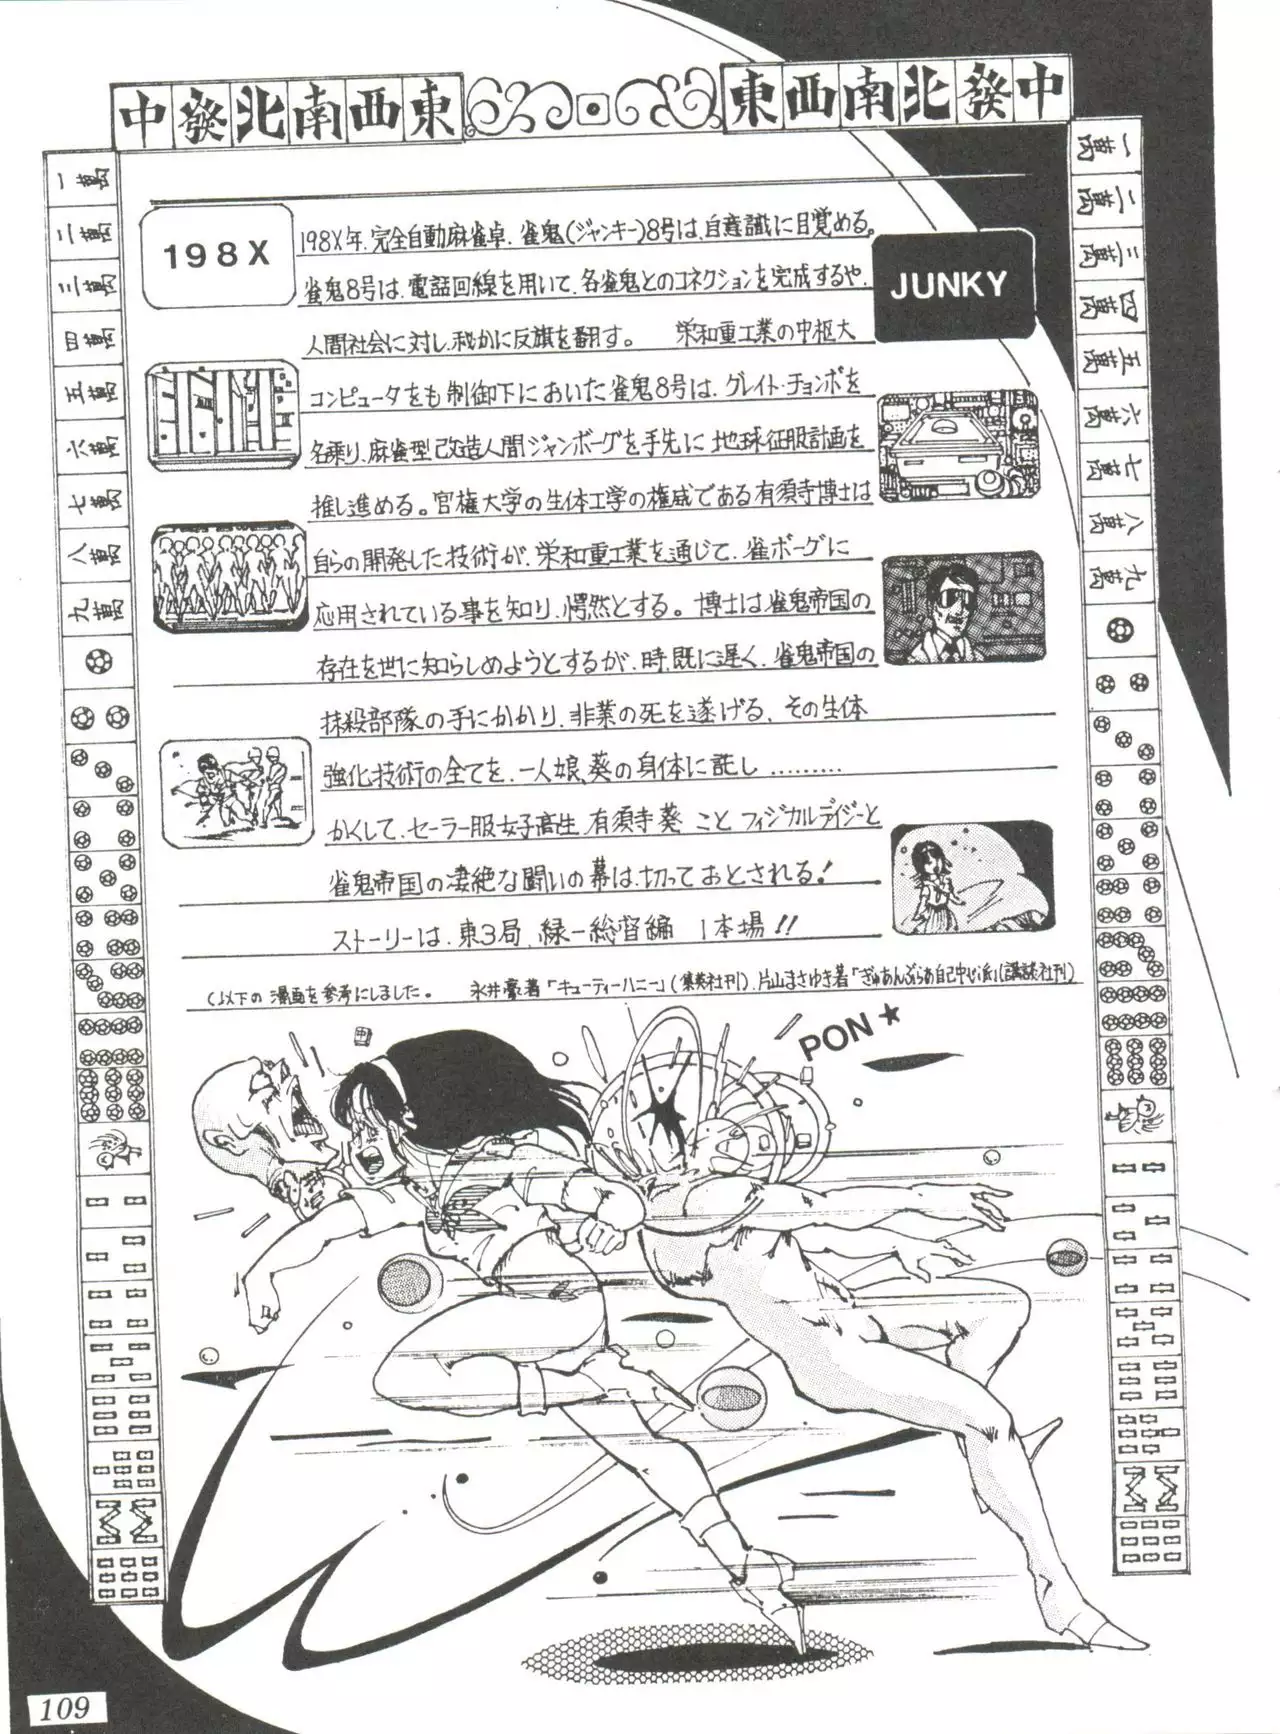 中發北南西東
東西南北發中
198X
JUNKY
198X年、完全自動麻雀卓、雀鬼(ジャンキー)8号は、自意識に目覚める。
雀鬼8号は、電話回線を用いて、各雀鬼とのコネクションを完成するや、
人間社会に対し、秘かに反旗を翻す。 栄和重工業の中枢大
コンピュータをも制御下においた雀鬼8号は、グレイト・チョンボを
名乗り、麻雀型改造人間ジャンボーグを手先に地球征服計画を
推し進める。官権大学の生体工学の権威である有須寺博士は
自らの開発した技術が、栄和重工業を通じて、雀ボーグに
応用されている事を知り、愕然とする。博士は雀鬼帝国の
存在を世に知らしめようとするが、時、既に遅く、雀鬼帝国の
抹殺部隊の手にかかり、非業の死を遂げる、その生体
強化技術の全てを、一人娘、葵の身体に託し………
かくして、セーラー服女子高生、有須寺葵 こと フィジカルデイジーと
雀鬼帝国の凄絶な闘いの幕は、切っておとされる!
ストーリーは、東3局、緑一総督編 1本場!!
(以下の漫画を参考にしました。 永井豪著「キューティーハニー」(集英社刊)、片山まさゆき著「ぎゅあんぶらあ自己中心派」(講談社刊)
一萬
二萬
三萬
四萬
五萬
六萬
七萬
八萬
九萬
一萬
二萬
三萬
四萬
五萬
六萬
七萬
八萬
九萬
PON★
中
109